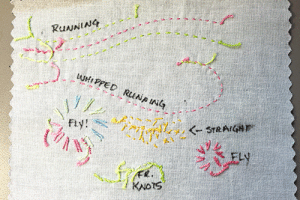 RUNNING
WHIPPED RUNNING
FLY!
← STRAIGHT
FLY
FR.
KNOTS